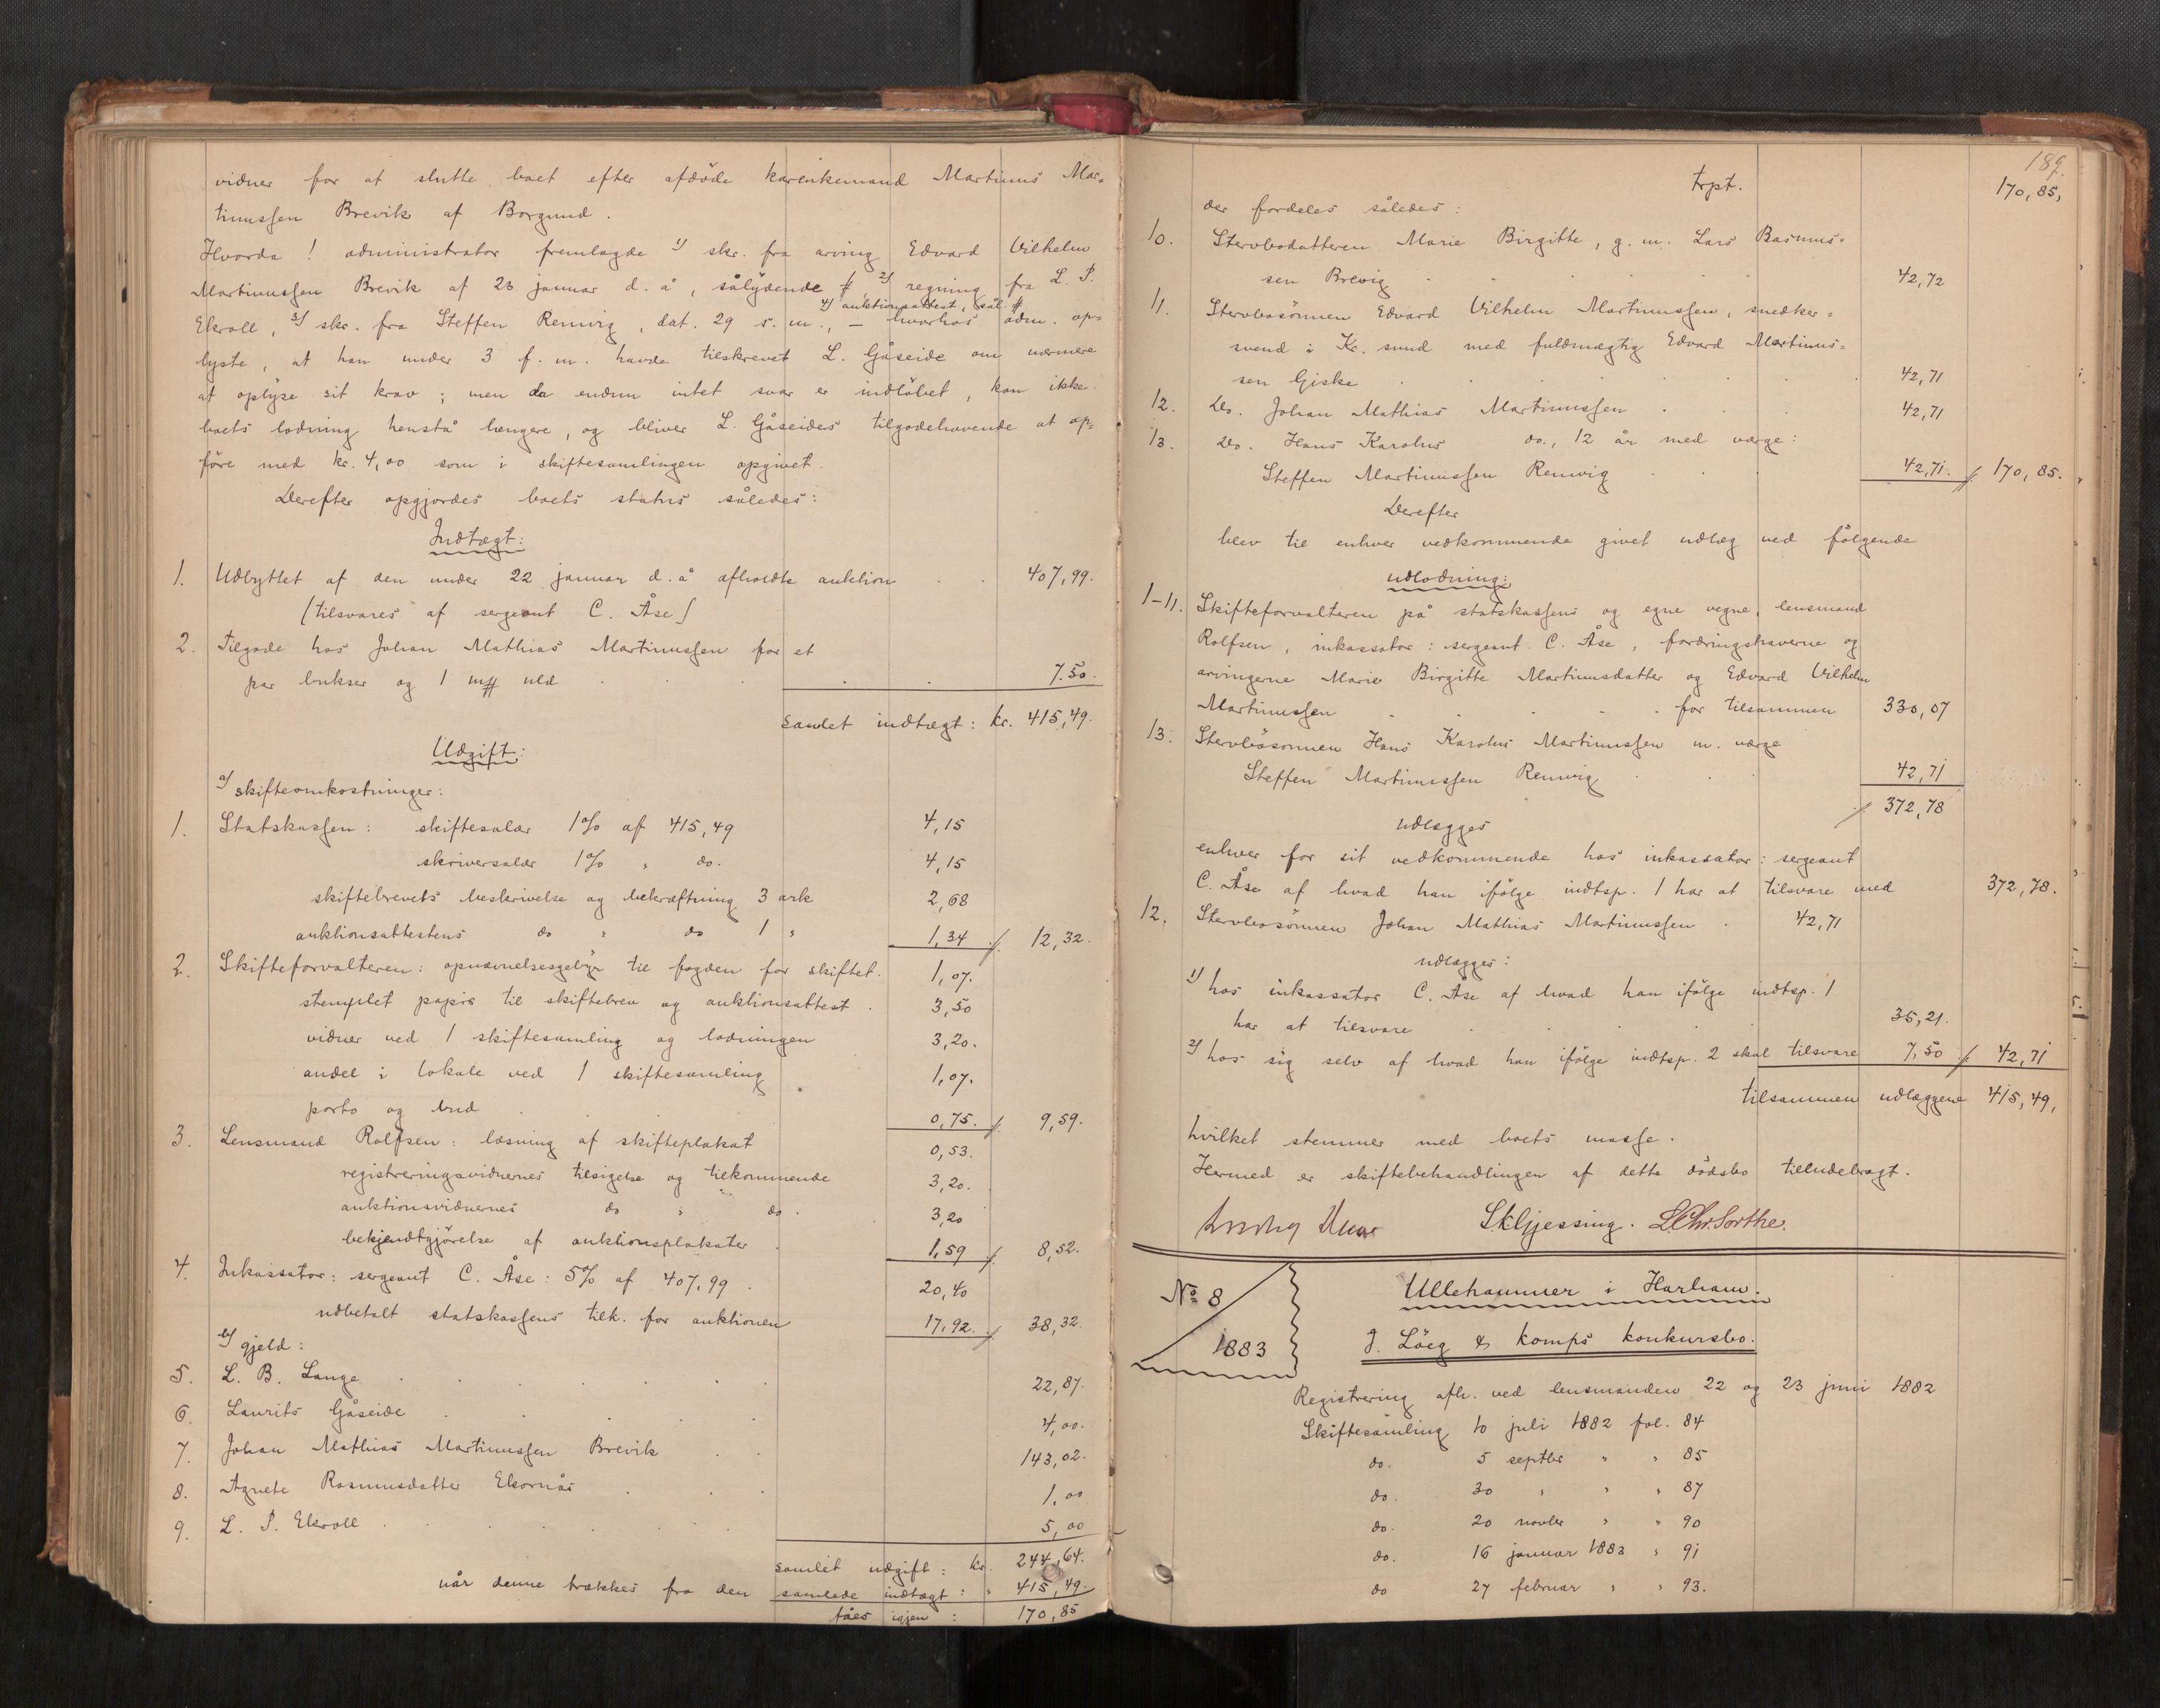 vidner for at slutte boet efter afdöde kårenkemand Martinus Mar=
tinussen Brevik af Borgund.
Hvorda! administrator fremlagde 1) skr. fra arving Edvard Vilhelm
Martinussen Brevik af 23 januar d. å, sålydende # 2) regning fra L. P.
4) auktionsattest, sål. #
Ekroll, 3) skr. fra Steffen Remvig, dat. 29 s. m., – hvorhos adm. op=
lyste, at han under 3 f. m. havde tilskrevet L. Gåseide om nærmere
at oplyse sit krav; men da endnu intet svar er indlöbet, kan ikke
boets lodning henstå længere, og bliver L. Gåseides tilgodehavende at op=
före med kr. 4,00 som i skiftesamlingen opgivet.
Derefter opgjordes boets status således:
Indtægt:
1. Udbyttet af den under 22 januar d. å afholdte auktion . . 407,99.
(tilsvares af sergeant C. Åse)
2. Tilgode hos Johan Mathias Martinussen for et
par bukser og 1 m# uld . . . . 7.50.
samlet indtægt: kr. 415,49.
Udgift:
a) skifteomkostninger:
1. Statskassen: skiftesalær 1% af 415,49 4,15
skriversalær 1% " do. 4,15
skiftebrevets beskrivelse og bekræftning 3 ark 2,68
auktionsattestens do " do 1 " 1,34 ./. 12,32.
2. Skifteforvalteren: opnævnelsesgebyr til fogden for skiftet. 1,07.
stemplet papir til skiftebrev og auktionsattest . 3,50
vidner ved 1 skiftesamling og lodningen 3,20.
andel i lokale ved 1 skiftesamling 1,07.
porto og bud . . . 0,75. ./. 9,59.
3. Lensmand Rolfsen: læsning af skifteplakat 0,53.
registreringsvidnernes tilsigelse og tilkommende 3,20.
auktionsvidnernes do " do. 3,20
bekjendtgjörelse af auktionsplakater . 1,59 ./. 8,52.
4. Inkassator: sergeant C. Åse: 5% af 407,99 . 20,40
udbetalt statskassens tilk. for auktionen 17,92. ./. 38,32.
b) gjeld:
5. L. B. Lange . . . . . 22,87.
6. Laurits Gåseide . . . . 4,00.
7. Johan Mathias Martinussen Brevik . . 143,02.
8. Agnete Rasmusdatter Ekornås . . 1,00
9. L. P. Ekroll . . . . . 5,00
samlet udgift: kr. 244,64.
når denne trækkes fra den samlede indtægt: " 415,49.
fåes igjen: 170,85
189.
trpt. 170,85,
der fordeles således:
10. Stervbodatteren Marie Birgitte, g. m. Lars Rasmus=
sen Brevig . . . . . 42,72
11. Stervbosönnen Edvard Vilhelm Martinussen, snedker=
svend i Kr. sund med fuldmægtig Edvard Martinus=
sen Giske . . . . . 42,71
12. Do. Johan Mathias Martinussen . . . 42,71
13. Do. Hans Karolus do., 12 år med værge:
Steffen Martinussen Remvig . . 42,71. ./. 170,85.
Derefter
blev til enhver vedkommende givet udlæg ved fölgende
udlodning:
1–11. Skifteforvalteren på statskassens og egne vegne, lensmand
Rolfsen, inkassator: sergeant C. Åse, fordringshaverne og
arvingerne Marie Birgitte Martinusdatter og Edvard Vilhelm
Martinussen . . . . . for tilsammen 330,07
13. Stervbosönnen Hans Karolus Martinussen m. værge
Steffen Martinussen Remvig . . 42,71
./. 372,78
udlægges
enhver for sit vedkommende hos inkassator: sergeant
C. Åse af hvad han ifölge indtsp. 1 har at tilsvare med 372,78.
12. Stervbosönnen Johan Mathias Martinussen . 42,71
udlægges:
1) hos inkassator C. Åse af hvad han ifölge indtsp. 1
har at tilsvare . . . . 35,21.
2) hos sig selv af hvad han ifölge indtsp. 2 skal tilsvare 7,50 ./. 42,71
tilsammen udlæggene 415,49,
hvilket stemmer med boets masse.
Hermed er skiftebehandlingen af dette dödsbo tilendebragt.
S. K. Gjessing. L. Chr. Sorthe.
No 8
1883
Ullehammer i Harham.
J. Löeg & komps konkursbo.
Registrering afh. ved lensmanden 22 og 23 juni 1882
Skiftesamling 10 juli 1882 fol. 84
do. 5 septbr " " 85
do. 30 " " " 87
do. 20 novbr " " 90
do. 16 januar 1883 " 91
do 27 februar " " 93.